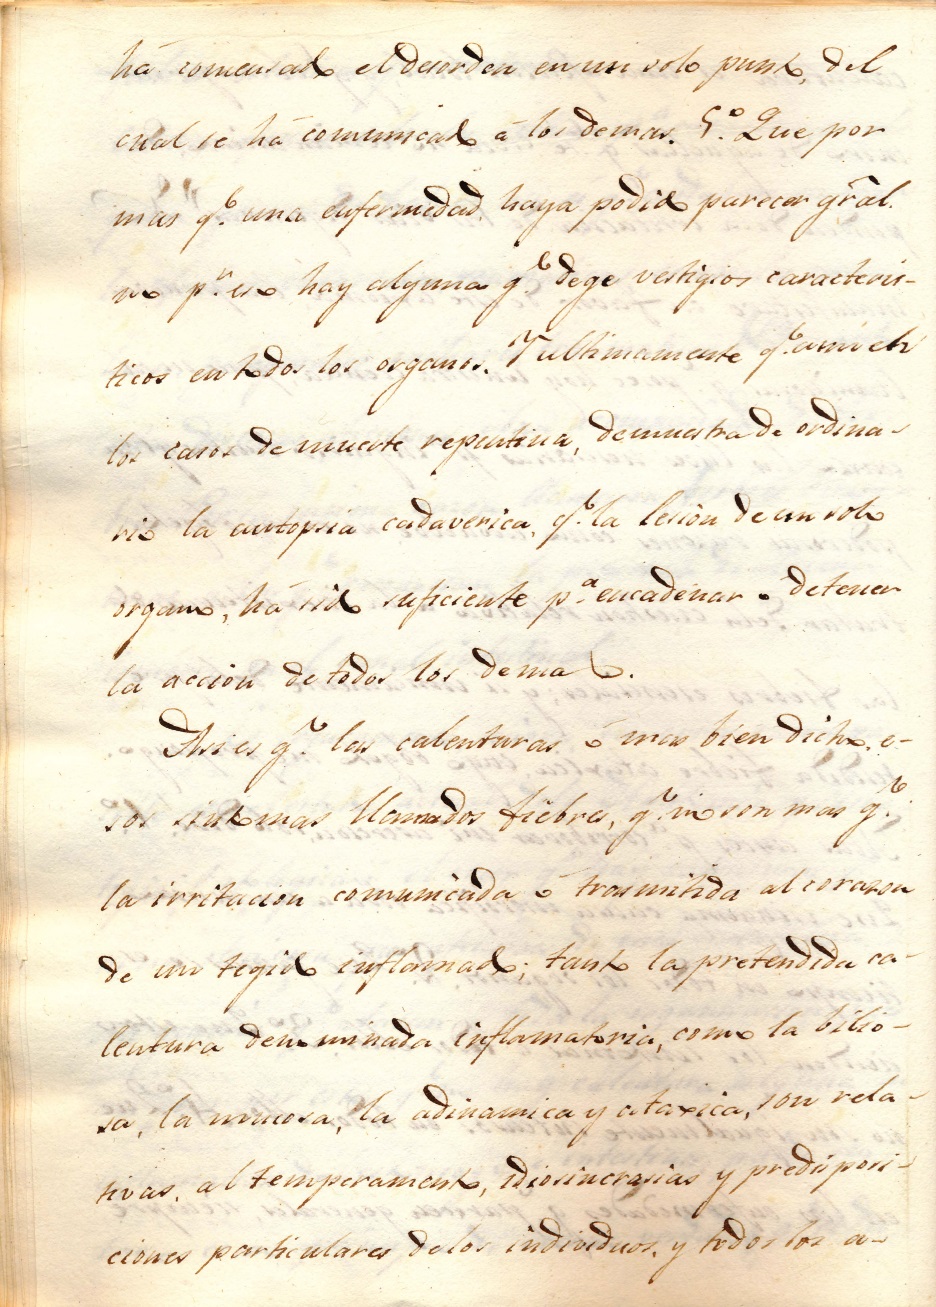 há comensado el desorden en un solo punto, del
cual se há comunicado á los demas. 5.º Que por
mas q.e una enfermedad haya podido parecer gral.
no p.r eso hay alguna q.e dege vestigios caracteris-
ticos en todos los organos. Y ultimamente q.e aun en
los casos de muerte repentina, demuestra de ordina-
rio la autopsia cadaverica, q.e la lesion de un solo
organo, há sido suficiente p.a encadenar o detener
la accion de todos los demas.
Asi es q.e las calenturas ó mas bien dicho, e-
sos sintomas llamados fiebres, q.e no son mas q.e
la irritacion comunicada ó trasmitida al corazon
de un tegido inflamado; tanto la pretendida ca-
lentura denominada inflamatoria, como la bilio-
sa, la mucosa, la adinamica y ataxica, son rela-
tivas, al temperamento, idiosincrasias y predisposi-
ciones particulares de los individuos, y todos los a-